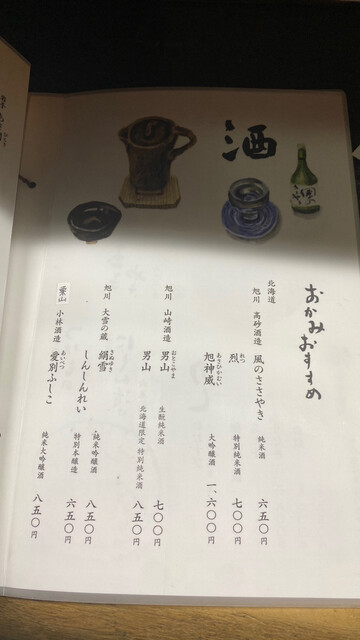 酒
おかみおすすめ
北海道
旭川 高砂酒造 風のささやき 純米酒 六五〇円
烈 れつ 特別純米酒 七〇〇円
旭神威 あさひかむい 大吟醸酒 一、六〇〇円
旭川 山崎酒造 男山 おとこやま 生酛純米酒 七〇〇円
男山 北海道限定 特別純米酒 八五〇円
旭川 大雪の蔵 絹雪 きぬゆき 純米吟醸酒 八五〇円
しんしんれい 特別本醸造 六五〇円
小林酒造 愛別ふしこ あいべつ 純米大吟醸酒 八五〇円